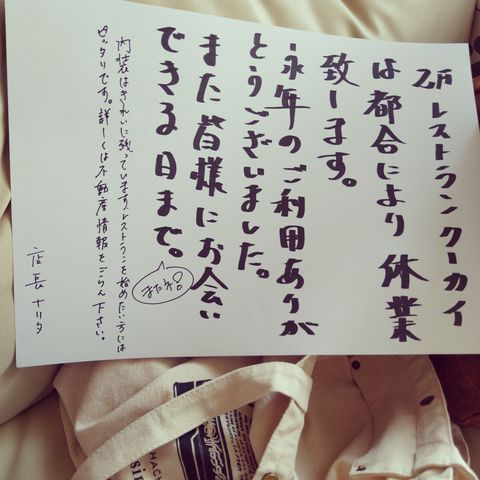 レストランクーカイ
は都合により休業
致します。
永年のご利用ありが
とうございました。
また皆様にお会い
できる日まで。
またネ!
内装はきれいに残っています。レストランを始めたい方には
ピッタリです。詳しくは不動産情報をごらん下さい。
店長 ナリタ